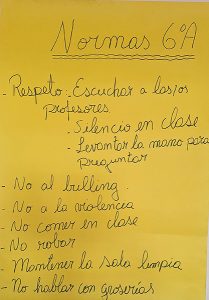 Normas 6ºA
- Respeto: . Escuchar a las/os
profesores
. Silencio en clase
. Levantar la mano para
preguntar
- No al bulling.
- No a la violencia
- No comer en clase
- No robar
- Mantener la sala limpia
- No hablar con groserías